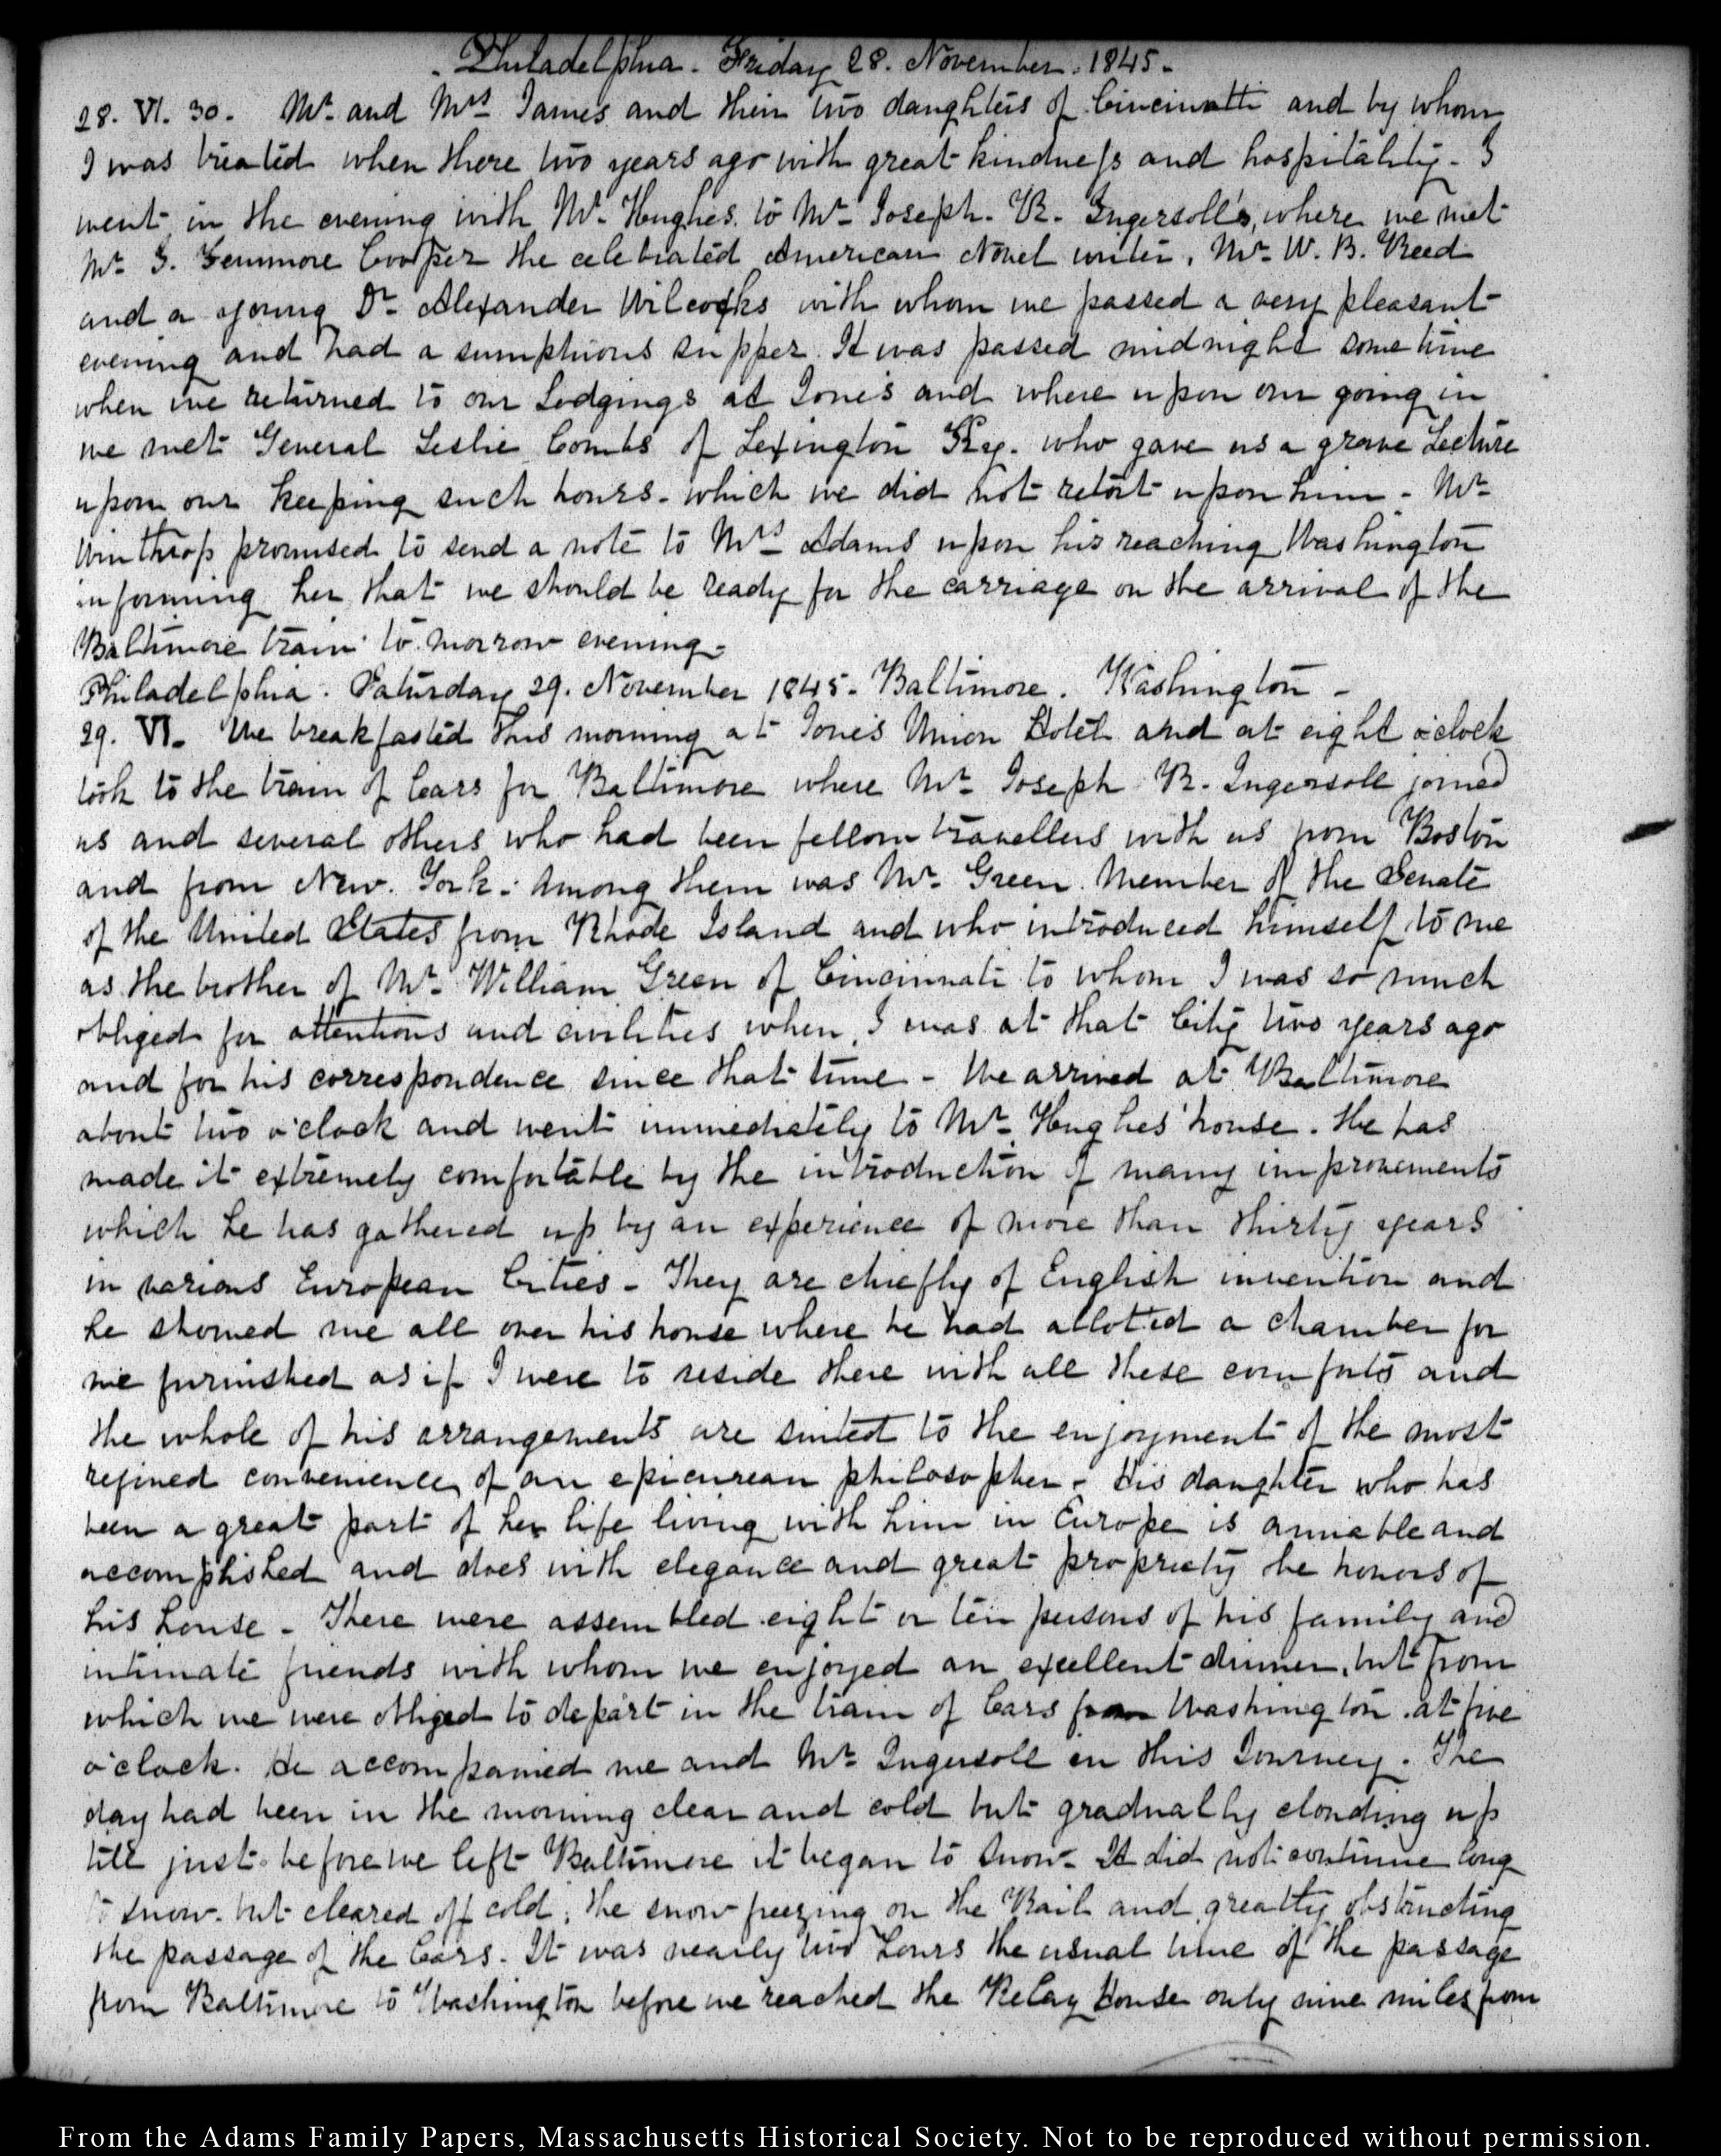 Philadelphia. Friday 28. November. 1845.
28. VI. 30. Mr. and Mrs James and their two daughters of Cincinatti and by whom
I was treated when there two years ago with great kindness and hospitality. I
went in the evening with Mr. Hughes to Mr. Joseph. R. Ingersoll's, where we met
Mr. J. Fenimore Cooper the celebrated American Novel writer, Mr. W. B. Reed
and a young Dr. Alexander Wilcocks with whom we passed a very pleasant
evening and had a sumptuous supper. It was passed midnight some time
when we returned to our Lodgings at Jones's and where upon our going in
we met General Leslie Combs of Lexington Ky. who gave us a grave Lecture
upon our keeping such hours - which we did not retort upon him - Mr.
Winthrop promised to send a note to Mrs Adams upon his reaching Washington
informing her that we should be ready for the carriage on the arrival of the
Baltimore train to morrow evening -
Philadelphia. Saturday 29. November 1845. Baltimore. Washington -
29. VI. We breakfasted this morning at Jones's Union Hotel and at eight o'clock
took to the train of Cars for Baltimore where Mr. Joseph R. Ingersoll joined
us and several others who had been fellow travellers with us from Boston
and from New. York. Among them was Mr. Green. Member of the Senate
of the United States from Rhode Island and who introduced himself to me
as the brother of Mr. William Green of Cincinnati to whom I was so much
obliged for attentions and civilities when I was at that City two years ago
and for his correspondence since that time - We arrived at Baltimore
about two o'clock and went immediately to Mr. Hughes' house. He has
made it extremely comfortable by the introduction of many improvements
which he has gathered up by an experience of more than thirty years
in various European Cities - They are chiefly of English invention and
he showed me all over his house where he had alloted a chamber for
me furnished as if I were to reside there with all these comforts and
the whole of his arrangements are suited to the enjoyment of the most
refined convenience of an epicurean philosopher - His daughter who has
been a great part of her life living with him in Europe is amiable and
accomplished and does with elegance and great propriety the honors of
his house - There were assembled eight or ten persons of his family and
intimate friends with whom we enjoyed an excellent dinner, but from
which we were obliged to depart in the train of Cars from Washington at five
o'clock. He accompanied me and Mr. Ingersoll in this Journey. The
day had been in the morning clear and cold but gradually clouding up
till just before we left Baltimore it began to snow. It did not continue long
to snow. but cleared off cold, the snow freezing on the Rail and greatly obstructing
the passage of the Cars. It was nearly two hours the usual time of the passage
from Baltimore to Washington before we reached the Relay House only nine miles from
From the Adams Family Papers, Massachusetts Historical Society. Not to be reproduced without permission.